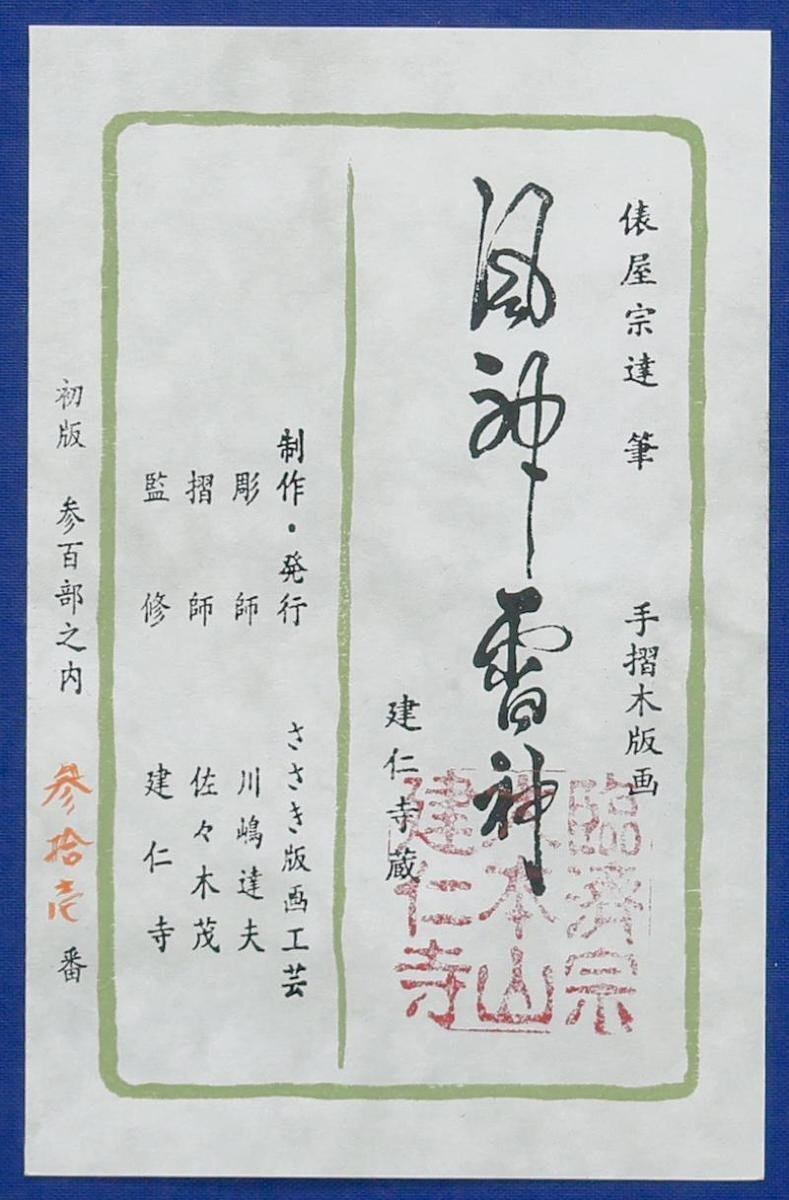 俵屋宗達 筆 手摺木版画
風神雷神
建仁寺蔵
臨済宗
大本山
建仁寺
制作・発行 ささき版画工芸
彫師 川嶋達夫
摺師 佐々木茂
監修 建仁寺
初版 参百部之内 参拾壱番